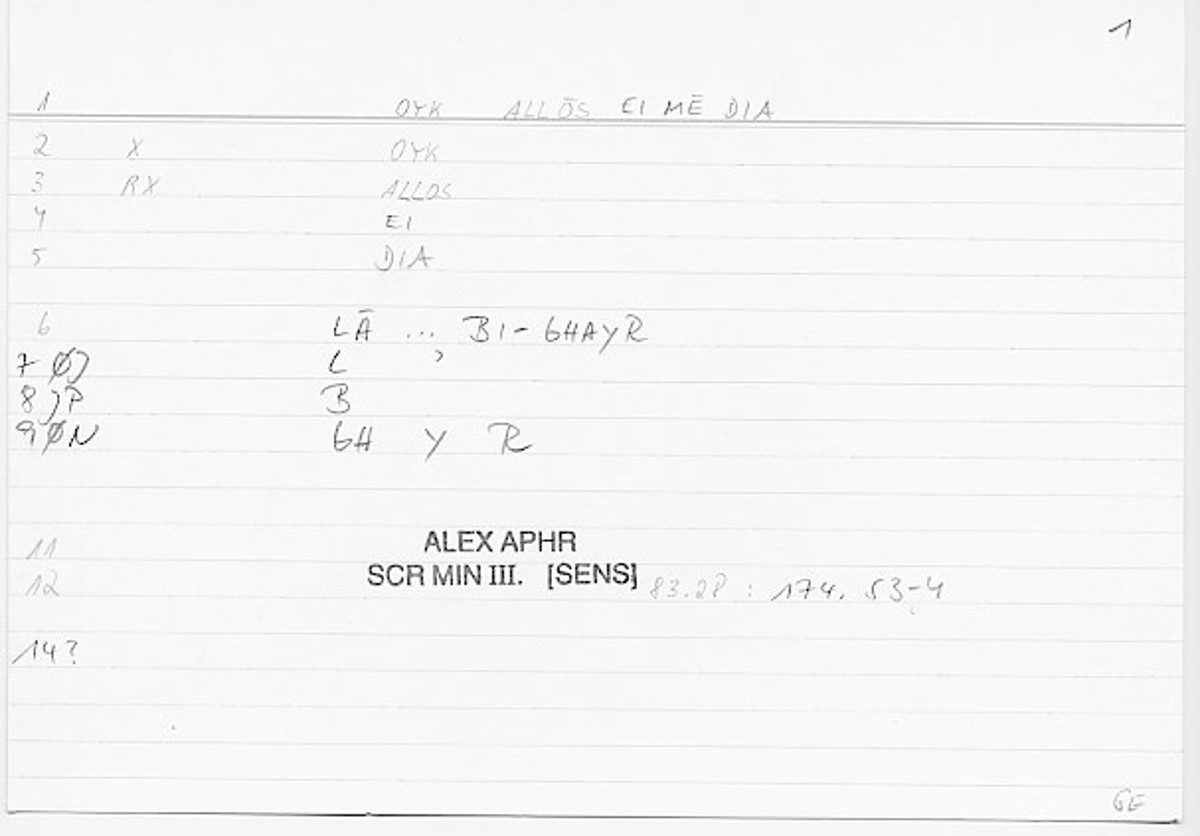 1
1 OYK ALLŌS EI MĒ DIA
2 X OYK
3 RX ALLOS
4 EI
5 DIA
6 LĀ ... BI-GHAYR
7 ØJ L ʾ
8 JP B
9 ØN GH Y R
11 ALEX APHR
12 SCR MIN III. [SENS] 83.28 : 174. 53-4
14?
GE